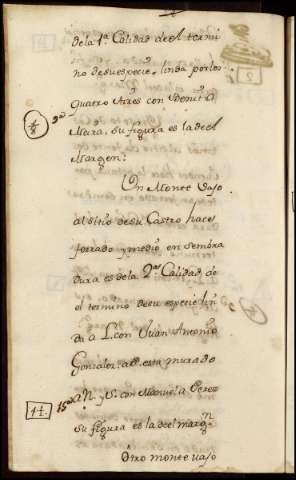 de la 1ª Calidad de el termi
no de su especie, linda por los
quatro Aires con Benito
Mura, su figura es la de el
Margen:
Un Monte vajo
al sitio de su Castro hace
forrado y medio en sembra
dura es de la 2ª Calidad de
el termino de su especie lin
da a L. con Juan Antonio
Gonzalez, a P. esta murado
a N. y S. con Manuela Perez
su figura es la de el margn
Otro monte vajo
2
14.
15